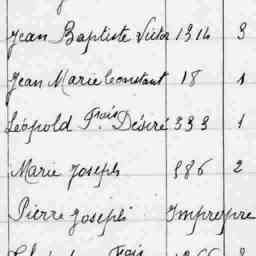 Jean Baptiste Victor 1314 3
Jean Marie Constant 18 1
Léopold Frois Désiré 333 1
Marie Joseph 886 2
Pierre Joseph Imprepre